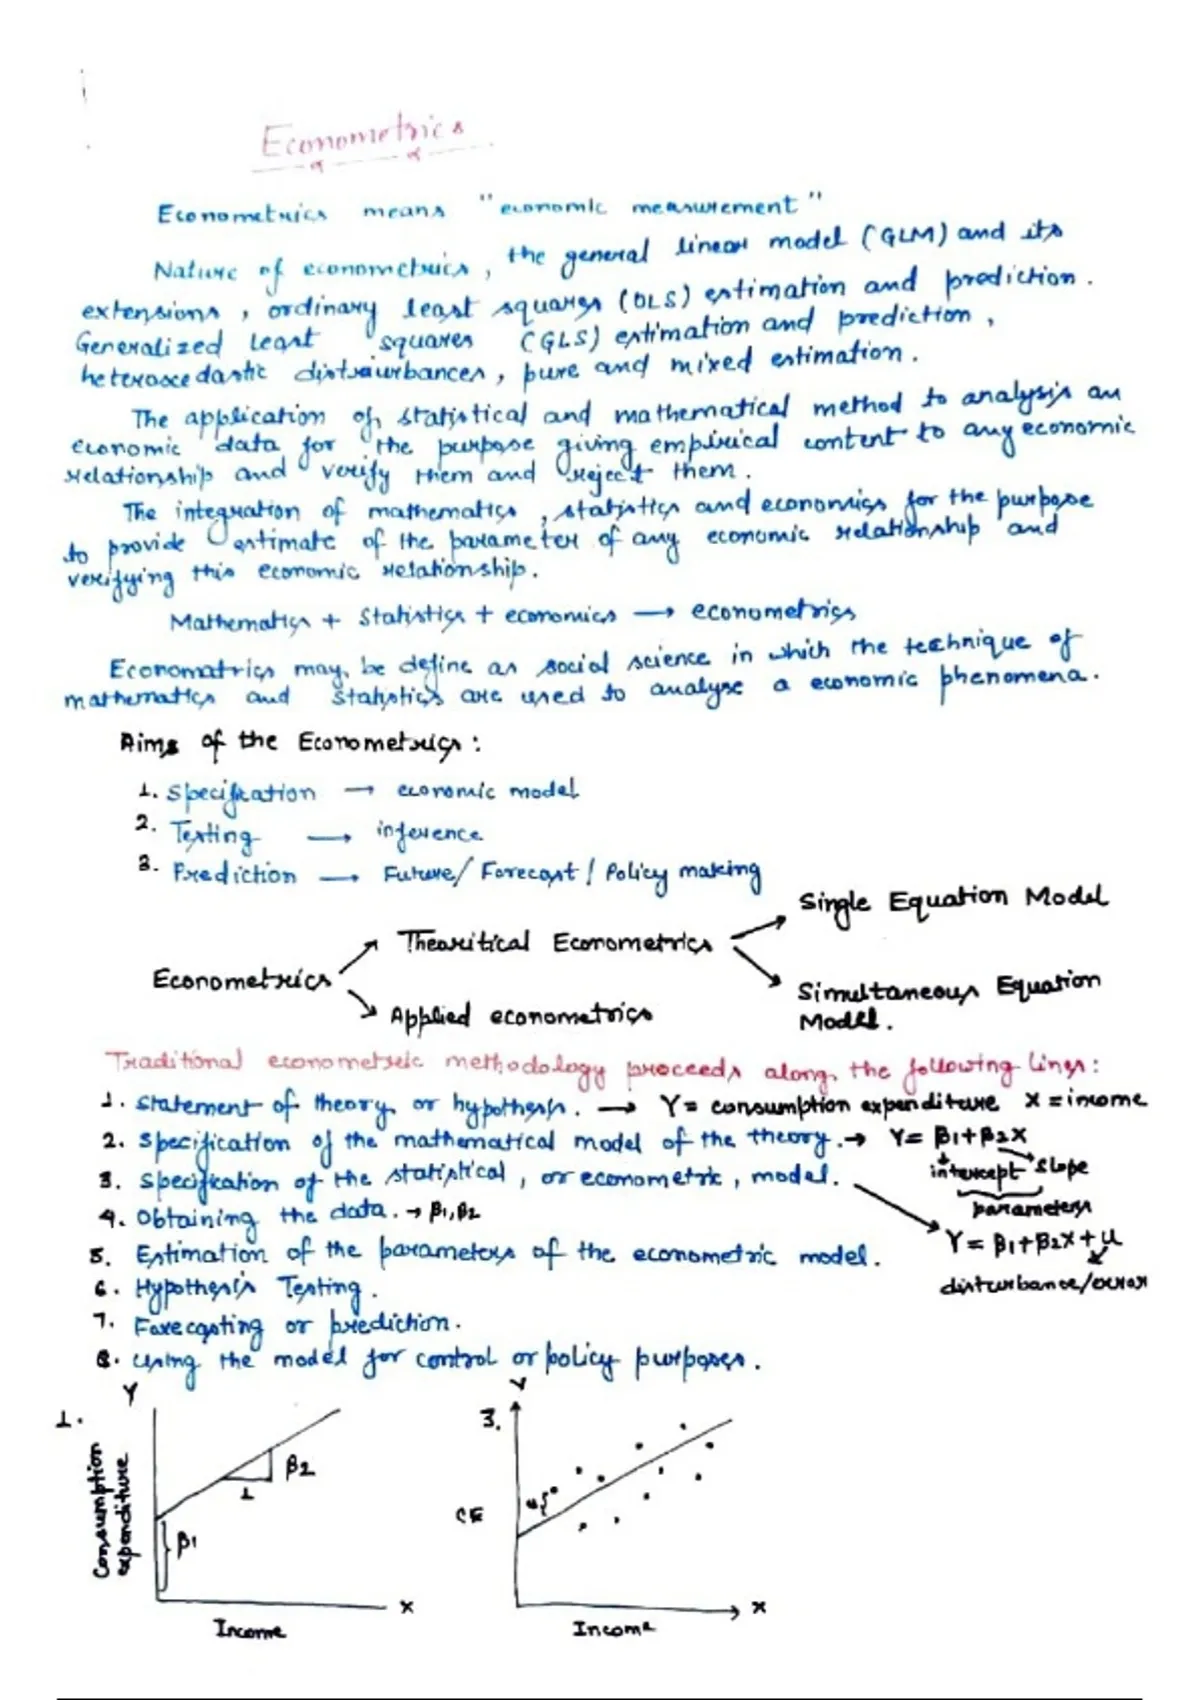 Econometrics
Econometrics means "economic measurement"
Nature of econometrics, the general linear model (GLM) and its
extensions, ordinary least squares (OLS) estimation and prediction.
Generalized least squares (GLS) estimation and prediction,
heteroscedastic distraurbances, pure and mixed estimation.
The application of statistical and mathematical method to analysis an
economic data for the purpose giving empirical content to any economic
relationship and verify them and reject them.
The integration of mathematics, statistics and economics for the purpose
to provide estimate of the parameter of any economic relationship and
verifying this economic relationship.
Mathematics + Statistics + economics → econometrics
Econometrics may be define as social science in which the technique of
mathematics and statistics are used to analyse a economic phenomena.
Aims of the Econometrics:
1. Specification → economic model
2. Testing → inference
3. Prediction → Future/ Forecast / Policy making
Single Equation Model
Thearitical Econometrics
Econometrics
Simultaneous Equation
Model.
Applied econometrics
Traditional econometric methodology proceeds along the following lines:
1. Statement of theory or hypothesis. → Y = consumption expenditure X = income
2. Specification of the mathematical model of the theory. → Y = β1+β2X
intercept slope
3. Specification of the statistical, or econometric, model.
parameters
4. Obtaining the data. → β1,β2
Y = β1+β2X+u
5. Estimation of the parameters of the econometric model.
disturbance/error
6. Hypothesis Testing.
7. Forecasting or prediction.
8. Using the model for control or policy purposes.
1.
Y
Consumption
expenditure
β2
1
β1
X
Income
3.
Y
CE
u
X
Income